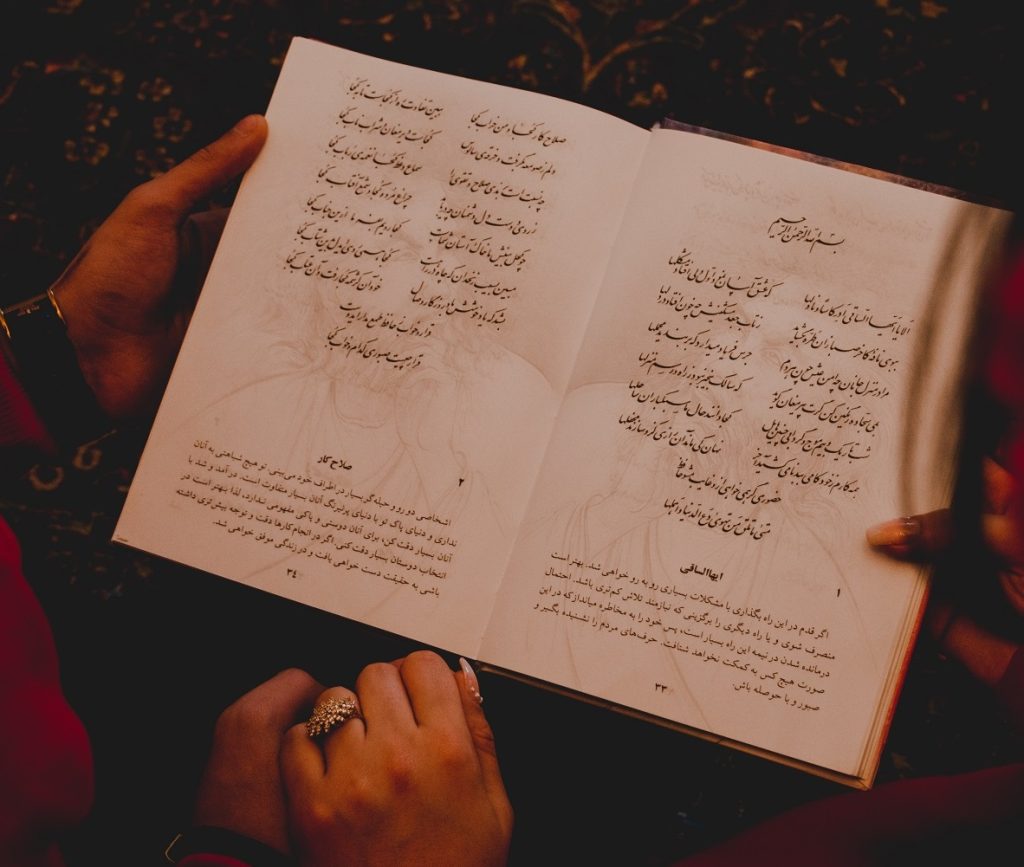 بسم الله الرحمن الرحیم
الا یا ایها الساقی ادر کاسا و ناولها که عشق آسان نمود اول ولی افتاد مشکلها
ببوی نافه کاخر صبا زان طره بگشاید ز تاب جعد مشکینش چه خون افتاد در دلها
مرا در منزل جانان چه امن عیش چون هر دم جرس فریاد میدارد که بربندید محملها
بمی سجاده رنگین کن گرت پیر مغان گوید که سالک بیخبر نبود ز راه و رسم منزلها
شب تاریک و بیم موج و گردابی چنین هایل کجا دانند حال ما سبکباران ساحلها
همه کارم ز خود کامی ببدنامی کشید آخر نهان کی ماند آن رازی کزو سازند محفلها
حضوری گر همی خواهی ازو غایب مشو حافظ
متی ما تلق من تهوی دع الدنیا و اهملها
۱
ایها الساقی
اگر قدم در این راه بگذاری با مشکلات بسیاری رو به رو خواهی شد. بهتر است
منصرف شوی و یا راه دیگری را برگزینی که نیازمند تلاش کم‌تری باشد. احتمال
درمانده شدن در نیمه این راه بسیار است، پس خود را به مخاطره میانداز که در این
صورت هیچ کس به کمکت نخواهد شتافت. حرف‌های مردم را نشنیده بگیر و
صبور و با حوصله باش.
۳۳
صلاح کار کجا و من خراب کجا ببین تفاوت ره از کجاست تا بکجا
دلم ز صومعه بگرفت و خرقه سالوس کجاست دیر مغان و شراب ناب کجا
چه نسبت است برندی صلاح و تقوی را سماع وعظ کجا نغمه رباب کجا
ز روی دوست دل دشمنان چه دریابد چراغ مرده کجا شمع آفتاب کجا
چو کحل بینش ما خاک آستان شماست کجا رویم بفرما ازین جناب کجا
مبین بسیب زنخدان که چاه در راهست کجا همی روی ای دل بدین شتاب کجا
بشد که یاد خوشش باد روزگار وصال خود آن کرشمه کجا رفت و آن عتاب کجا
قرار و خواب ز حافظ طمع مدار ای دوست
قرار چیست صبوری کدام خواب کجا
۲
صلاح کار
اشخاصی دورو و حیله‌گر بسیار در اطراف خود می‌بینی. تو هیچ شباهتی به آنان
نداری و دنیای پاک تو با دنیای پرنیرنگ آنان بسیار متفاوت است. در آمد و شد با
آنان بسیار دقت کن، برای آنان دوستی و پاکی مفهومی ندارد، لذا بهتر است در
انتخاب دوستان بسیار دقت کنی. اگر در انجام کارها دقت و توجه بیش‌تری داشته
باشی به حقیقت دست خواهی یافت و در زندگی موفق خواهی شد.
۳۴